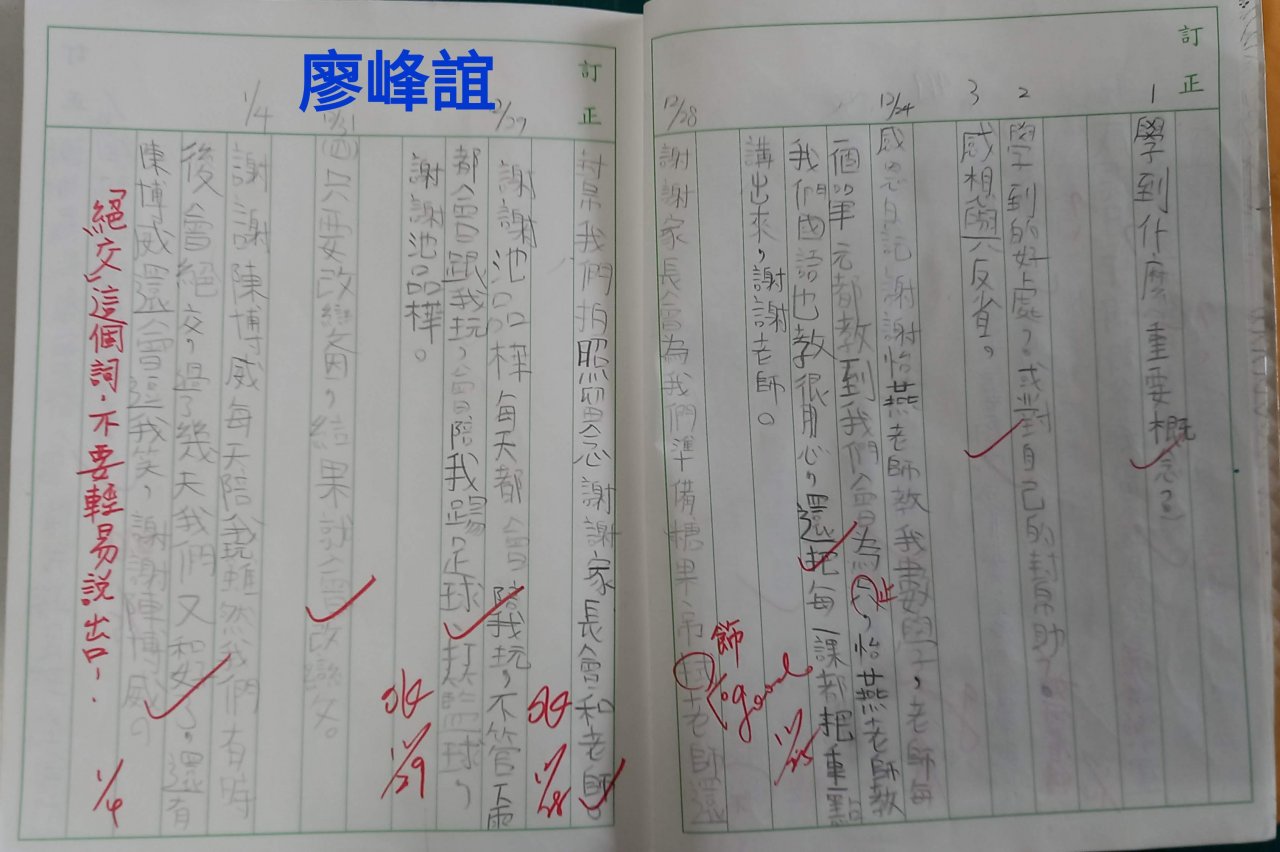 廖峰誼
訂正
1
學到什麼重要概念?
2
學到的好處?或對自己的幫助?
3
感想與反省。
12/24
感恩日記謝謝怡燕老師教我數學,老師每
個單元都教到我們會為
止
,怡燕老師教
我們國語也教很用心,還把每一課都把重點
講出來,謝謝老師。
good
12/25
12/28
謝謝家長會為我們準備糖果、吊
飾
老師還
訂正
幫我們拍照留念謝謝家長會和老師。
12/28
12/29
謝謝池品樺每天都會陪我玩,不管下雨
都會跟我玩,會陪我踢足球、打籃球,
謝謝池品樺。
12/29
12/31
只要改變角,結果就會改變又。
1/4
謝謝陳博威每天陪我玩雖然我們有時
後會絕交,過了幾天我們又和好了,還有
陳博威還會逗我笑,謝謝陳博威。
「絕交」這個詞,不要輕易說出口!
1/4